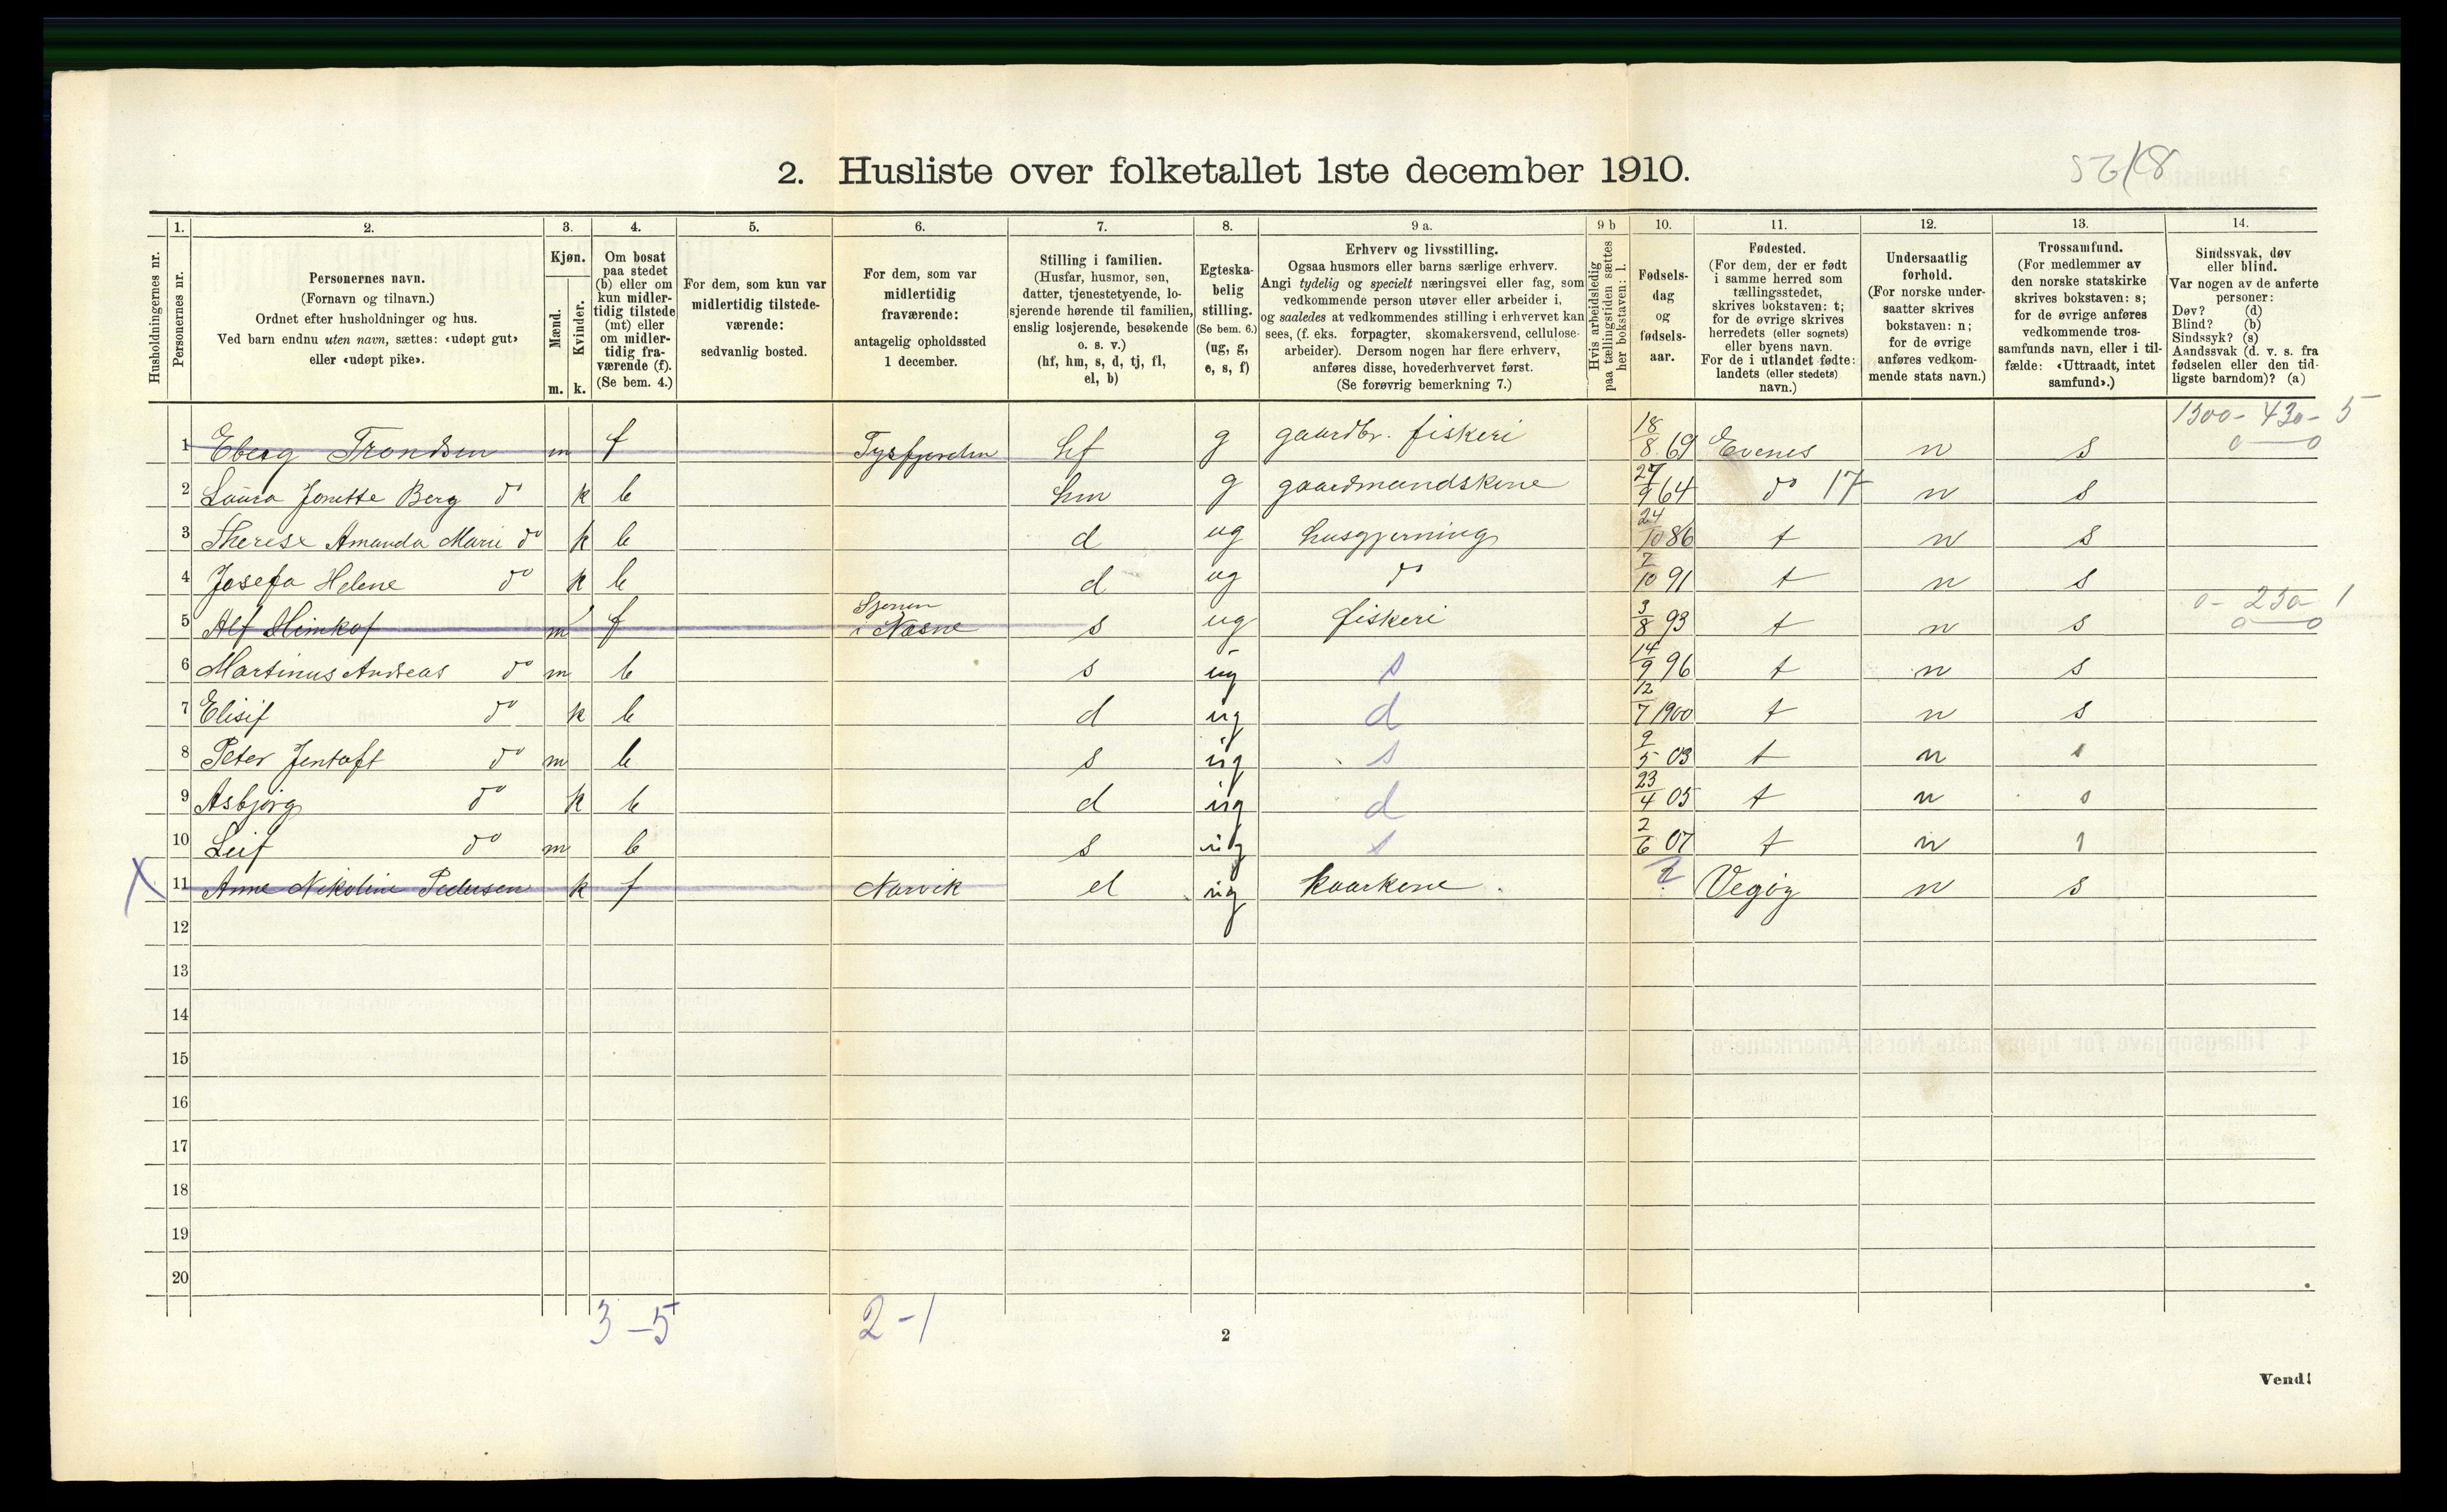 2. Husliste over folketallet 1ste december 1910.
Husholdningernes nr.
1. Personernes nr.
2. Personernes navn.
(Fornavn og tilnavn.)
Ordnet efter husholdninger og hus.
Ved barn endnu uten navn, sættes: «udøpt gut»
eller «udøpt pike».
3. Kjøn.
Mænd. Kvinder.
m. k.
4. Om bosat
paa stedet
(b) eller om
kun midler-
tidig tilstede
(mt) eller
om midler-
tidig fra-
værende (f).
(Se bem. 4.)
5. For dem, som kun var
midlertidig tilstede-
værende:
sedvanlig bosted.
6. For dem, som var
midlertidig
fraværende:
antagelig opholdssted
1 december.
7. Stilling i familien.
(Husfar, husmor, søn,
datter, tjenestetyende, lo-
sjerende hørende til familien,
enslig losjerende, besøkende
o. s. v.)
(hf, hm, s, d, tj, fl,
el, b)
8. Egteska-
belig
stilling.
(Se bem. 6.)
(ug, g,
e, s, f)
9 a. Erhverv og livsstilling.
Ogsaa husmors eller barns særlige erhverv.
Angi tydelig og specielt næringsvei eller fag, som
vedkommende person utøver eller arbeider i,
og saaledes at vedkommendes stilling i erhvervet kan
sees, (f. eks. forpagter, skomakersvend, cellulose-
arbeider). Dersom nogen har flere erhverv,
anføres disse, hovederhvervet først.
(Se forøvrig bemerkning 7.)
9 b Hvis arbeidsledig
paa tællingstiden sættes
her bokstaven: l.
10. Fødsels-
dag
og
fødsels-
aar.
11. Fødested.
(For dem, der er født
i samme herred som
tællingsstedet,
skrives bokstaven: t;
for de øvrige skrives
herredets (eller sognets)
eller byens navn.
For de i utlandet fødte:
landets (eller stedets)
navn.)
12. Undersaatlig
forhold.
(For norske under-
saatter skrives
bokstaven: n;
for de øvrige
anføres vedkom-
mende stats navn.)
13. Trossamfund.
(For medlemmer av
den norske statskirke
skrives bokstaven: s;
for de øvrige anføres
vedkommende tros-
samfunds navn, eller i til-
fælde: «Uttraadt, intet
samfund».)
14. Sindssvak, døv
eller blind.
Var nogen av de anførte
personer:
Døv? (d)
Blind? (b)
Sindssyk? (s)
Aandssvak (d. v. s. fra
fødselen eller den tid-
ligste barndom)? (a)
1300 - 430 - 5
1 Eberg Trondsen m f Tysfjorden hf g gaardbr. fiskeri 18/8 69 Evenes n s 0 — 0
2 Laura Jonette Berg do k b hm g gaardmandskone 27/9 64 do 17 n s
3 Therese Amanda Marie do k b d ug husgjerning 24/10 86 t n s
4 Josefa Helene do k b d ug do 7/10 91 t n s
0 - 230 - 1
5 Alf m f i Næsne s ug fiskeri 3/8 93 t n s 0 — 0
6 Martinus Andreas do m b s ug s 14/9 96 t n s
7 Elisif do k b d ug d 12/7 1900 t n s
8 Peter Jentoft do m b s ug s 9/5 03 t n s
9 Asbjørg do k b d ug d 23/4 05 t n s
10 Leif do m b s ug s 2/6 07 t n s
X 11 Anne Nikoline Pedersen k f Narvik el ug kaarkone. ? Vegøy n s
12
13
14
15
16
17
18
19
20
3 - 5 2 - 1
2
Vend!